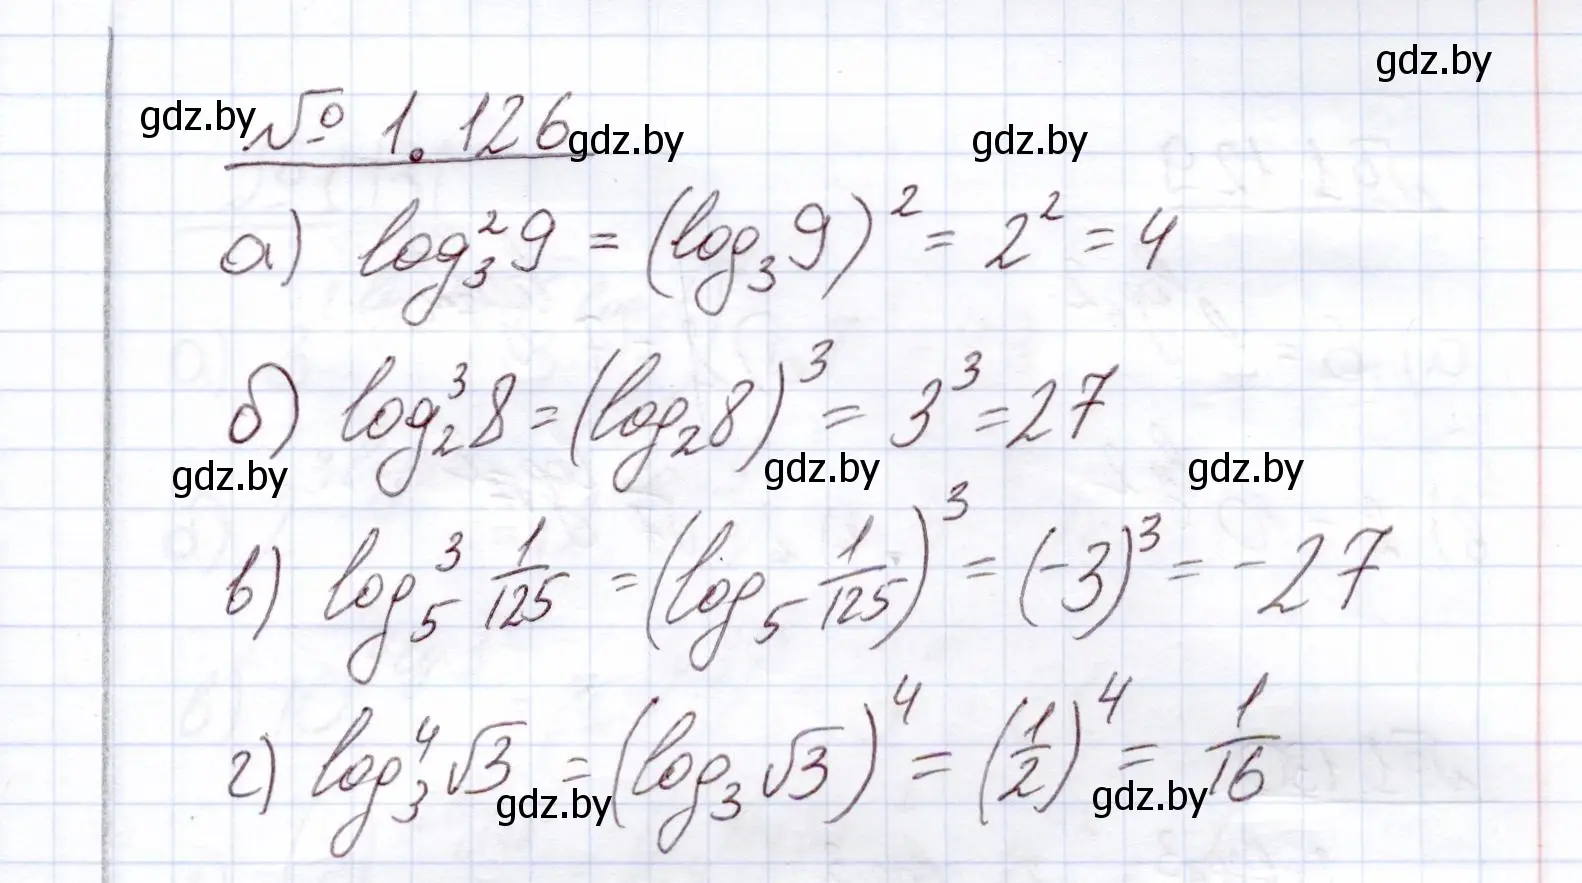 gdz.by
gdz.by № 1.126 gdz.by gdz.by
а) log₃²9 = (log₃9)² = 2² = 4
б) log₂³8 = (log₂8)³ = 3³ = 27
gdz.by gdz.by gdz.by
в) log₅³ 1/125 = (log₅ 1/125)³ = (-3)³ = -27
г) log₃⁴√3 = (log₃√3)⁴ = (1/2)⁴ = 1/16
gdz.by gdz.by